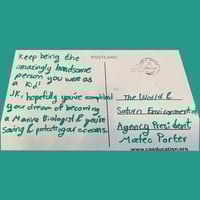 POSTCARD
Keep being the
amazingly handsome
person you were as
a kid!
JK, hopefully you've completed
you dream of becoming
a Marine Biologist & you're
Saving & protecting our oceans.
The World &
Saturn Environmental
Agency President
Mateo Porter
www.coeducation.org